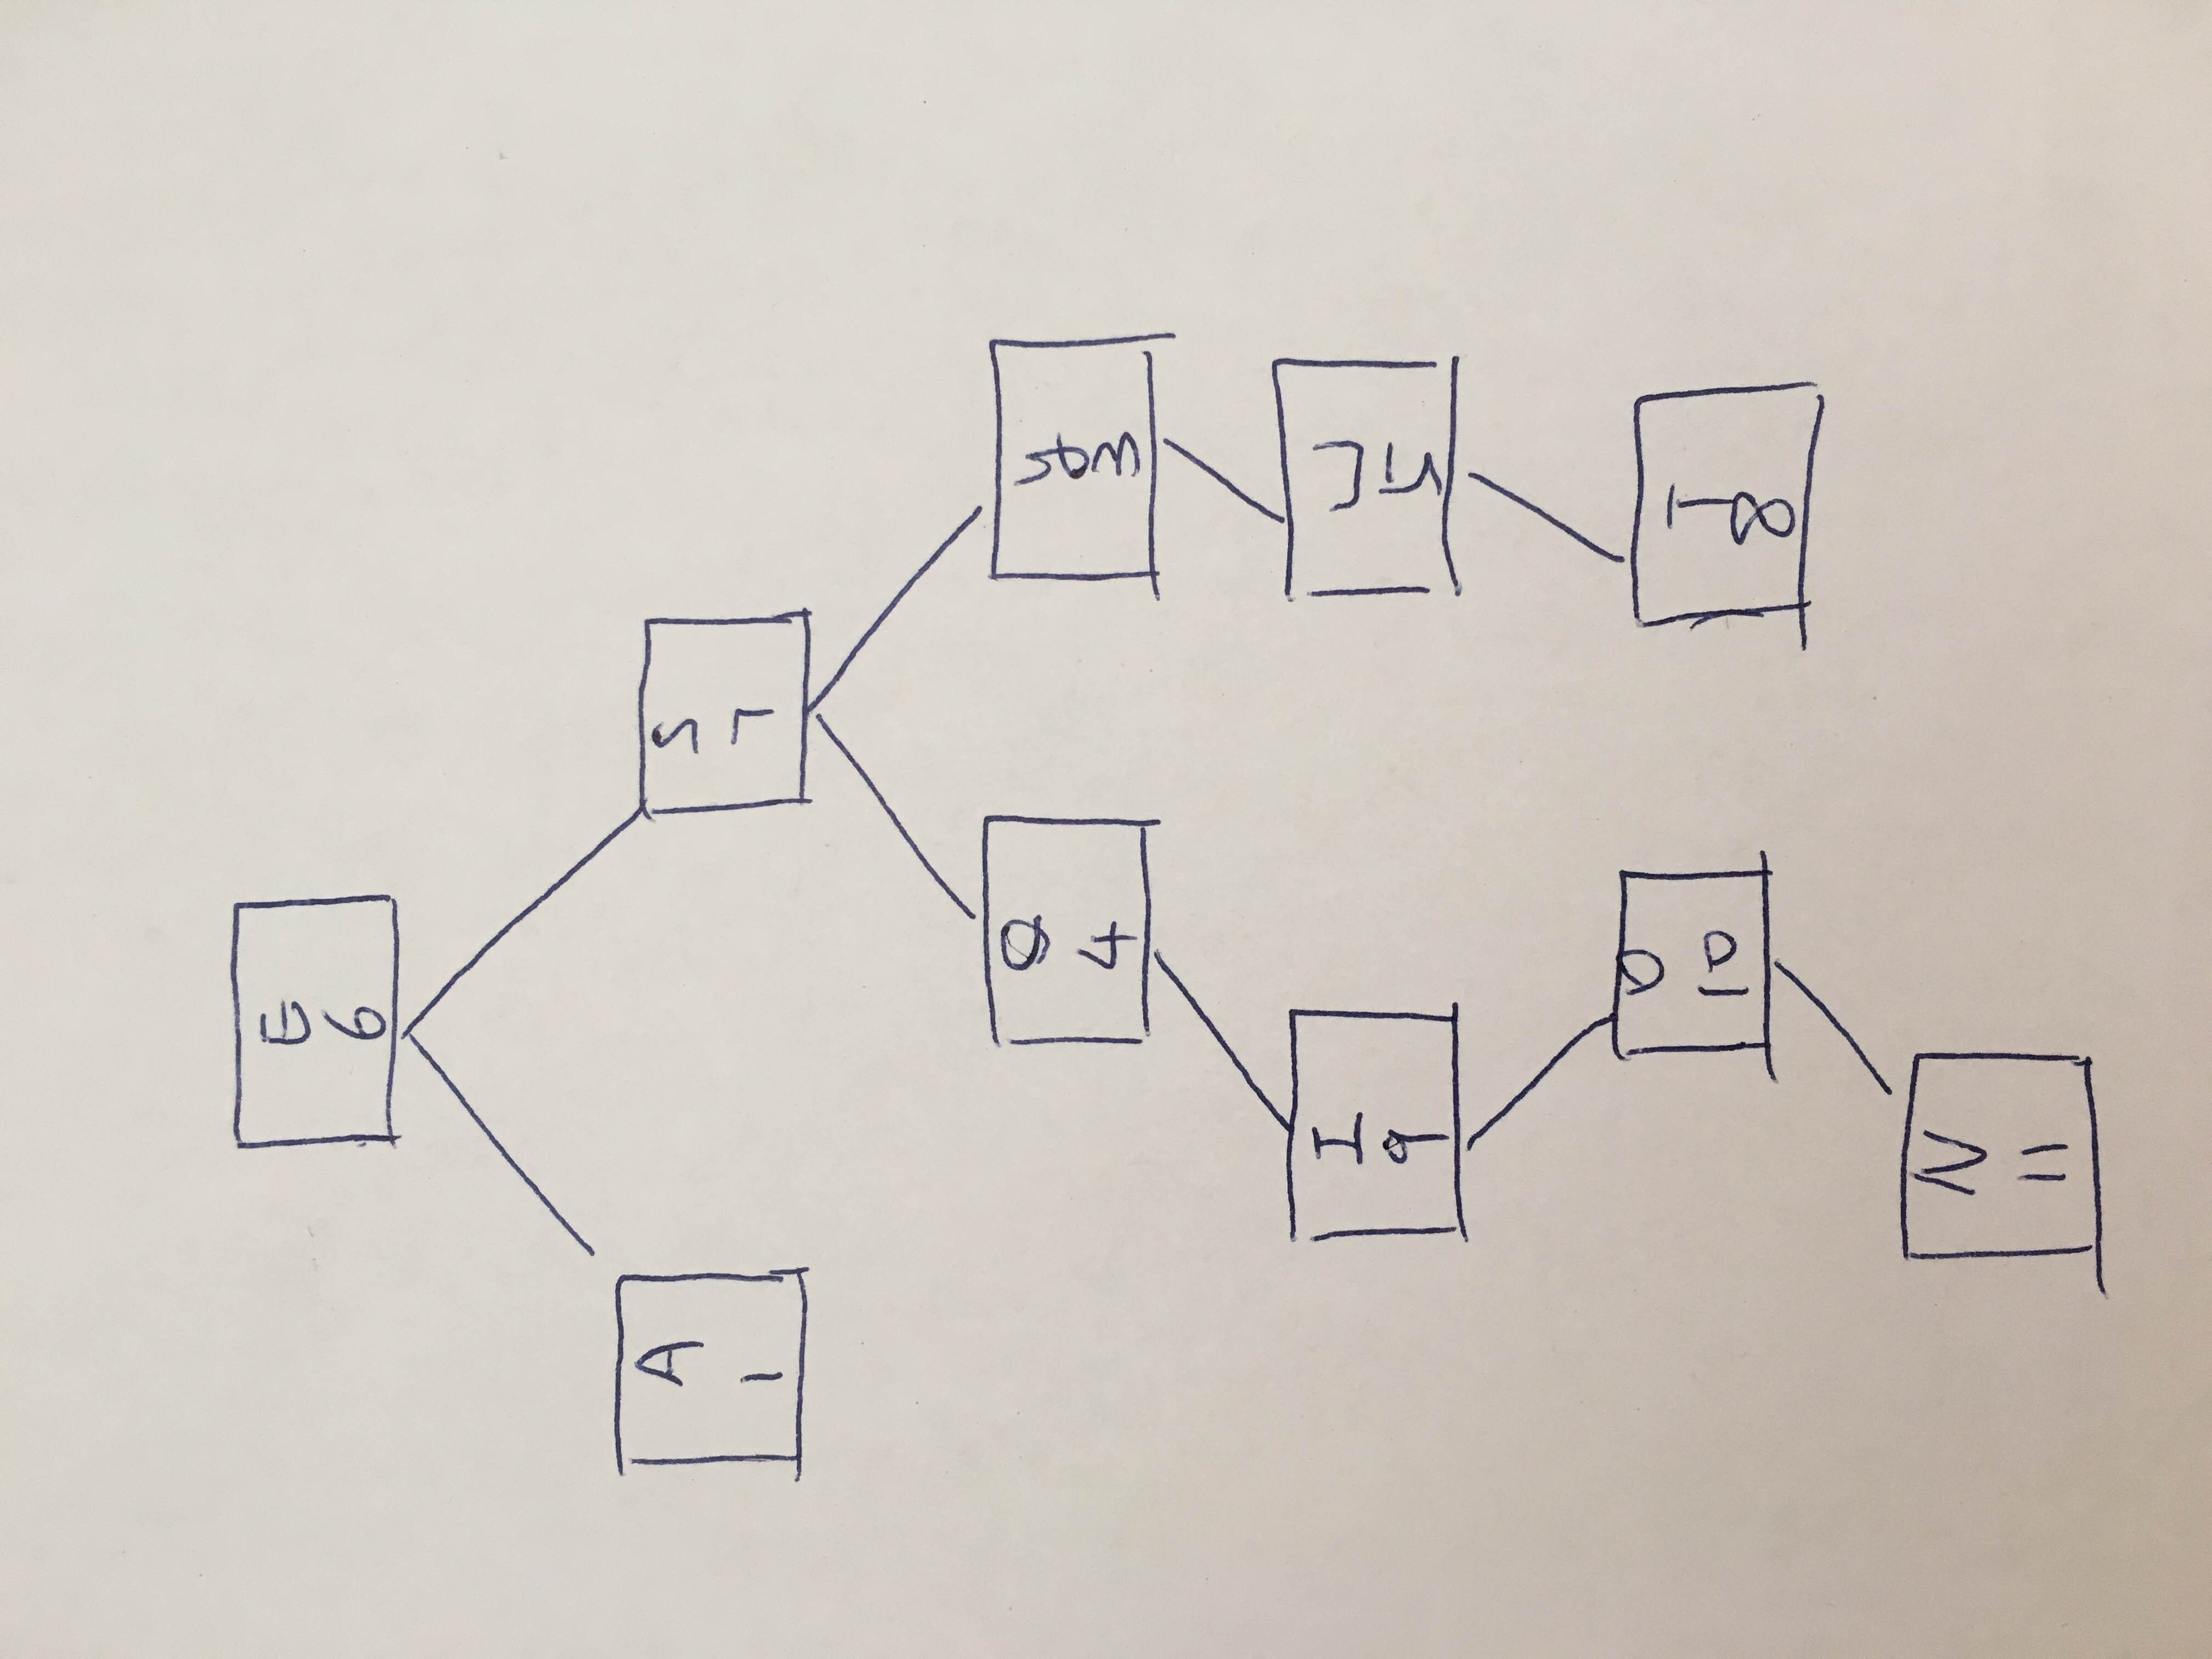 E
6
A
1
S
7
Q
4
Y
3
I
9
U
5
O
10
T
8
N
11